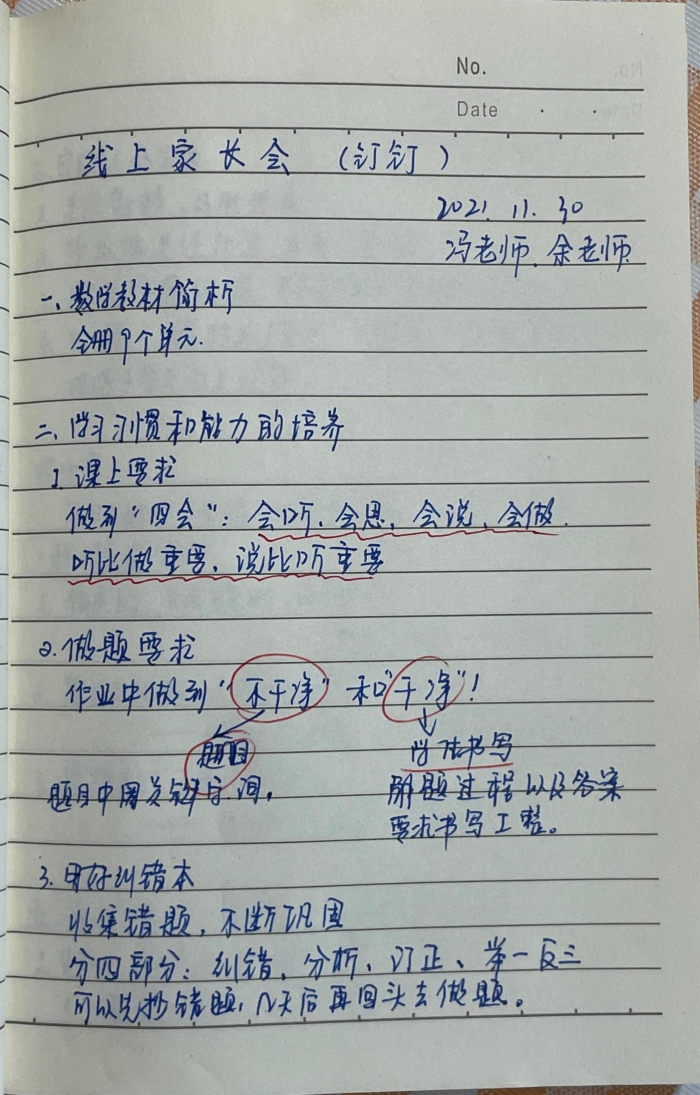 No.
Date
线上家长会 (钉钉)
2021.11.30
冯老师、余老师
一、数学教材简析
全册9个单元.
二、学习习惯和能力的培养
1. 课上要求
做到“四会”: 会听、会思、会说、会做.
听比做重要、说比听重要
2. 做题要求
作业中做到“不干净”和“干净”!
题目
题目中圈关键字、词。
书写
解题过程以及答案
要求书写工整。
3. 用好纠错本
收集错题, 不断巩固
分四部分: 纠错、分析、订正、举一反三
可以先抄错题, 几天后再回头去做题。